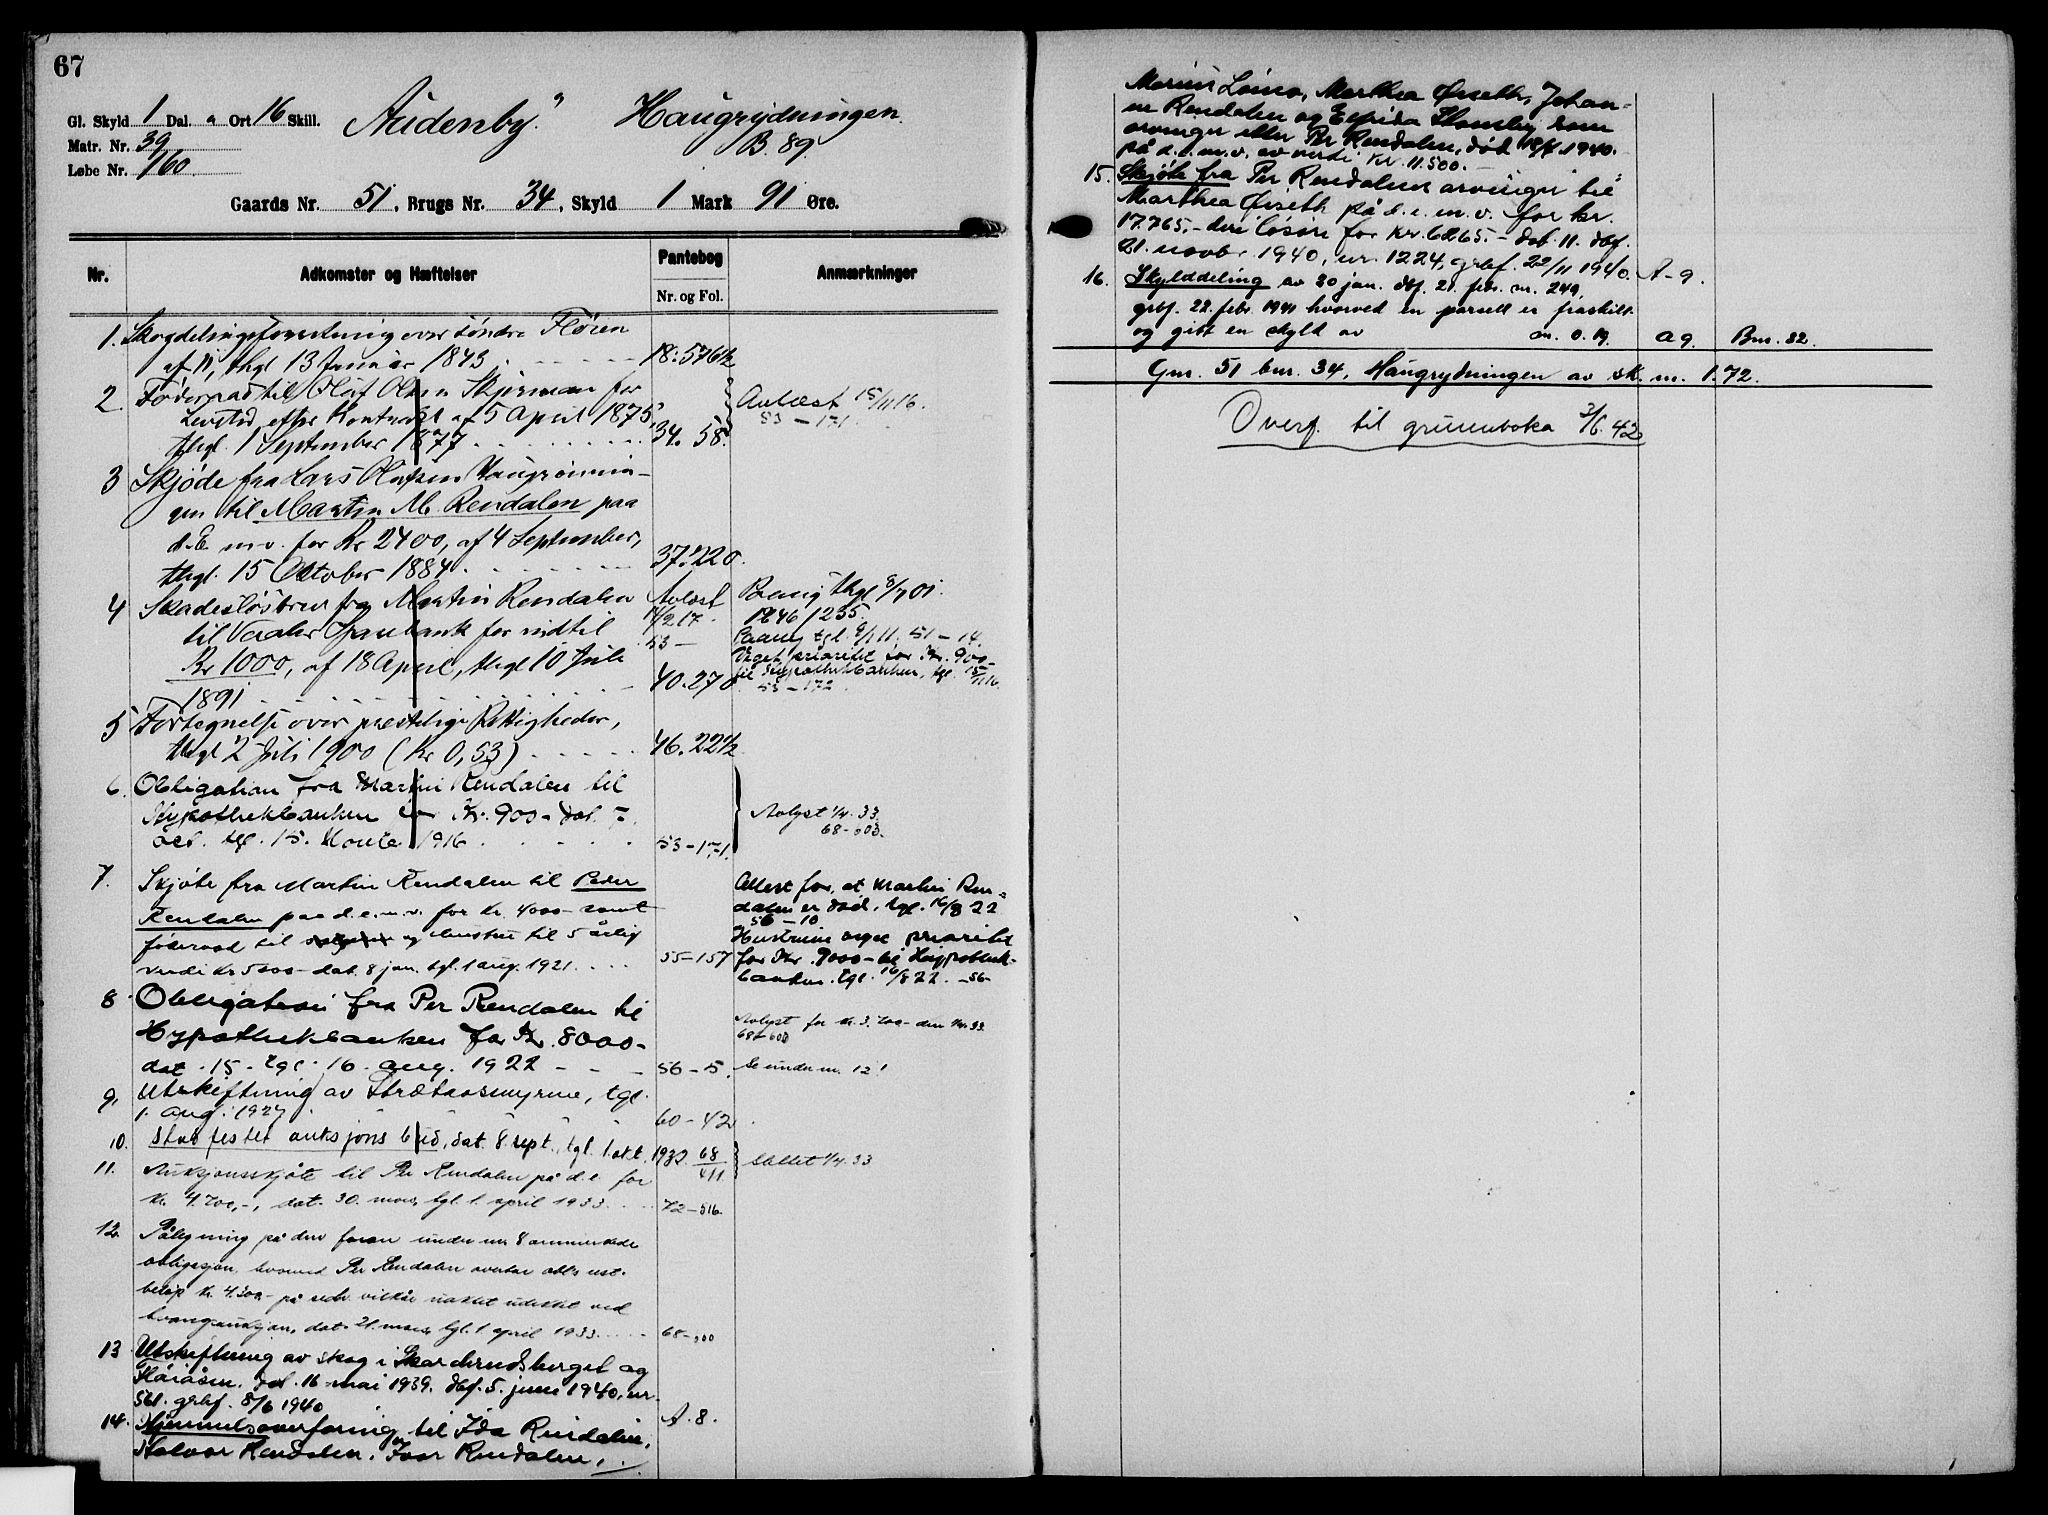 67
Gl. Skyld 1 Dal. " Ort 16 Skill. "Audenby" Haugrydningen
Matr. Nr. 39 B. 89.
Løbe Nr. 160.
Gaards Nr. 51, Brugs Nr. 34, Skyld 1 Mark 91 Øre.
Nr. Adkomster og Hæftelser Pantebog Nr. og Fol. Anmærkninger
1. Skogdelingsforretning over søndre Fløien
af 11, thgl 13 Januar 1873. 18: 576½
2. Føderaad til Olaf Olsen for
Levetid efter Kontrakt af 5 April 1875,
thgl. 1 September 1877 34. 58.
Avlæst 15/11 16.
53 – 171.
3 Skjøde fra Lars Olafsen Haugrønnin-
gen til Martin M. Rendalen paa
d. E. m.v. for Kr 2400, af 4 September,
thgl. 15 Oktober 1884. 37. 220.
4 Skadesløsbrev fra Martin Rendalen
til Vaaler Sparebank for indtil
Kr 1000, af 18 April, thgl 10 Juli
1891 40. 270
Avlæst
14/2 17.
53 –
thgl 8/7 01.
46/255.
tgl. 9/1 11. 51 – 14.
Veget prioritet for Kr. 900–
til Hypothekbanken, tgl. 15/11 16.
53 – 172.
5 Fortegnelse over prestelige Rettigheder,
thgl 2 Juli 1900 (Kr 0,53) 46. 22½
6. Obligation fra Martin Rendalen til
Hypothekbanken for Kr. 900– dat. 7.
oct. tgl. 15. 1916 53–171.
Avlyst 1/4. 33.
68–
7. Skjøte fra Martin Rendalen til Peder
Rendalen paa d. e. m. v. for kr. 4000– samt
føderaad til og hustru til 5 årlig
verdi kr 500– dat. 8 jan. tgl. 1 aug. 1921. 55–157
Attest for, at Martin Ren-
dalen er død, tgl. 16/8 22
56–10
Hustruen veget prioritet
for Kr. 9000– til Hypothek-
banken. tgl. 16/8 22. –56–
8 Obligation fra Per Rendalen til
Hypothekbanken for Kr. 8000–
dat. 15. tgl. 16. aug. 1922 – – – 56–5.
Avlyst for kr. 3.700– den 1/4. 33
68–
Se under nr. 12!
9. Utskiftning av Strætkosmyrene, tgl.
1. aug. 1927 60–42
10. Stadfestet auksjonsbud, dat. 8. sept., tgl. 1. okt. 1932 68/411
Slettet 1/4. 33
11. Auksjonsskjøte til Per Rendalen på d.e. for
kr. 4.700,–, dat. 30. mars, tgl. 1. april 1933. 72–516.
12. Påtegning på den foran under nr. 8 anmerkede
obligasjon, hvorved Per Rendalen overtar
beløp kr. 4.300– på vilkår ved
tvangsauksjon, dat. 21. mars, tgl. 1. april 1933. 68–
13 Utskiftning av skog i Skarderudsberget og
Høiåsen. dat. 16 mai 1939. dbf. 5. juni 1940, nr.
561. grbf. 8/6 1940 A. 8.
14. Hjemmelsoverføring til Ida Rendalen,
Halvor Rendalen, Ivar Rendalen,
Marius Marthea Ørseth, Johan-
ne Rendalen og som
arvinger etter Per Rendalen, død 18/7 1940.
på d. e. m. v. av verdi kr. 11.500.
15. Skjøte fra Per Rendalens arvinger til
Marthea Ørseth på d. e. m. v. for kr.
17.765,– deri løsøre for kr. 6265.– dat. 11. dbf.
21. novbr. 1940, nr. 1224, grbf. 22/11 1940. A-9.
16. Skylddeling av 30 jan. dbf. 21. febr. nr. 249,
grbf. 22. febr. 1941 hvorved en parsell er fraskilt
og gitt en skyld av m. 0.19. A 9. Bnr. 82.
Gnr. 51 bnr. 34, Haugrydningen av sk. m. 1.72.
Overf. til grunnboka 3/6. 42